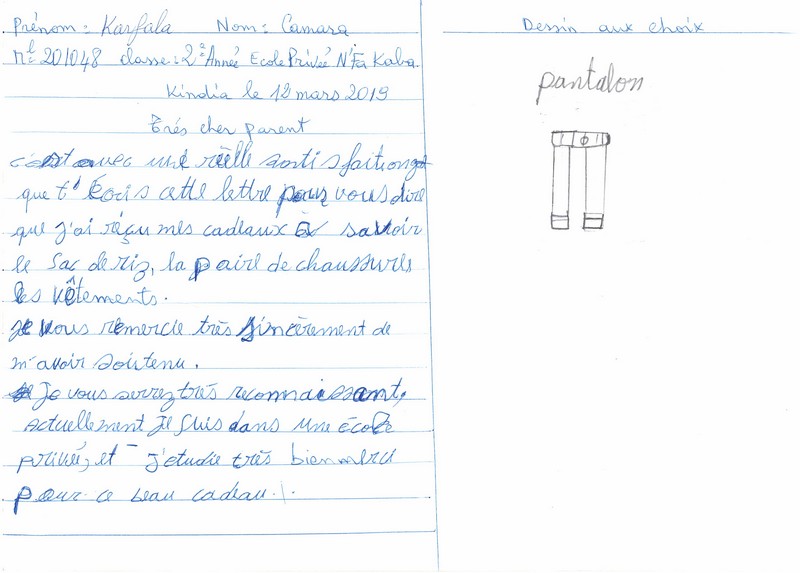 Prénom : Karfala Nom : Camara
N° 201048 classe : 2e Année Ecole Privée N'Fa Kaba
Kindia le 12 mars 2019
Trés cher parent
c'est avec une réelle santisfaition
que t'Ecris cette lettre pour vous dire
que j'ai réçu mes cadeaux à savoir
le sac de riz, la paire de chaussures
les vêtements.
je vous remercie très sincèrement de
m'avoir soutenu.
Je vous serrez très reconnaissant,
actuellement je suis dans une école
privée, et j'etudie très bien merci
pour ce beau cadeau.
Dessin aux choix
pantalon